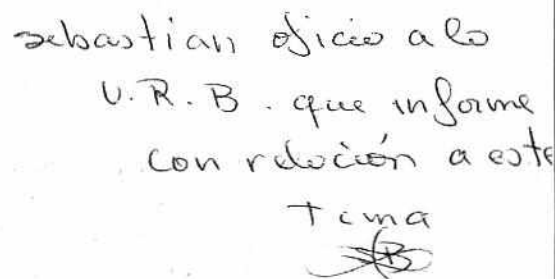 sebastian oficio a lo
U.R.B. que informe
con relación a este
tema